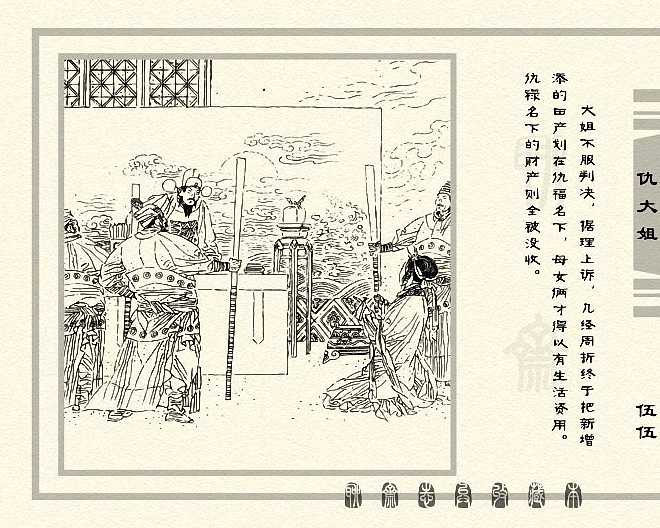 大姐不服判决，据理上诉，几经周折终于把新增
添的田产划在仇福名下，母女俩才得以有生活资用。
仇禄名下的财产则全被没收。
仇大姐
伍伍
聊斋志异收藏本